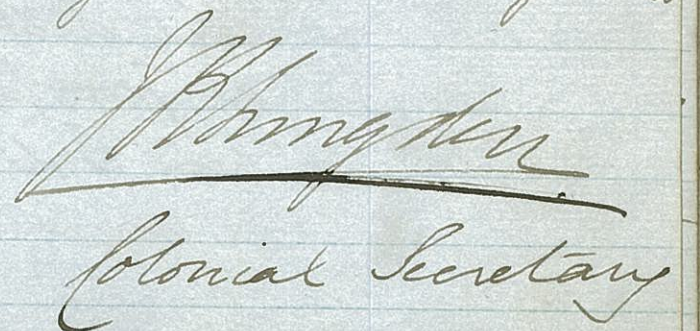 J R Longden
Colonial Secretary